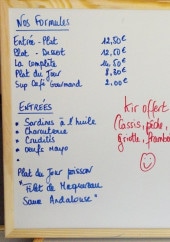 Nos Formules
Entrée - Plat 12,50€
Plat - Dessert 12,50€
La complète 14,50€
Plat du Jour 8,80€
Sup Café Gourmand 2,00€
ENTRÉES
• Sardines à l'huile
• Charcuterie
• Crudités
• Oeufs Mayo
Kir offert
Cassis, pêche,
griotte, framboise
Plat du Jour poisson
"Filet de Maquereau
Sauce Andalouse"